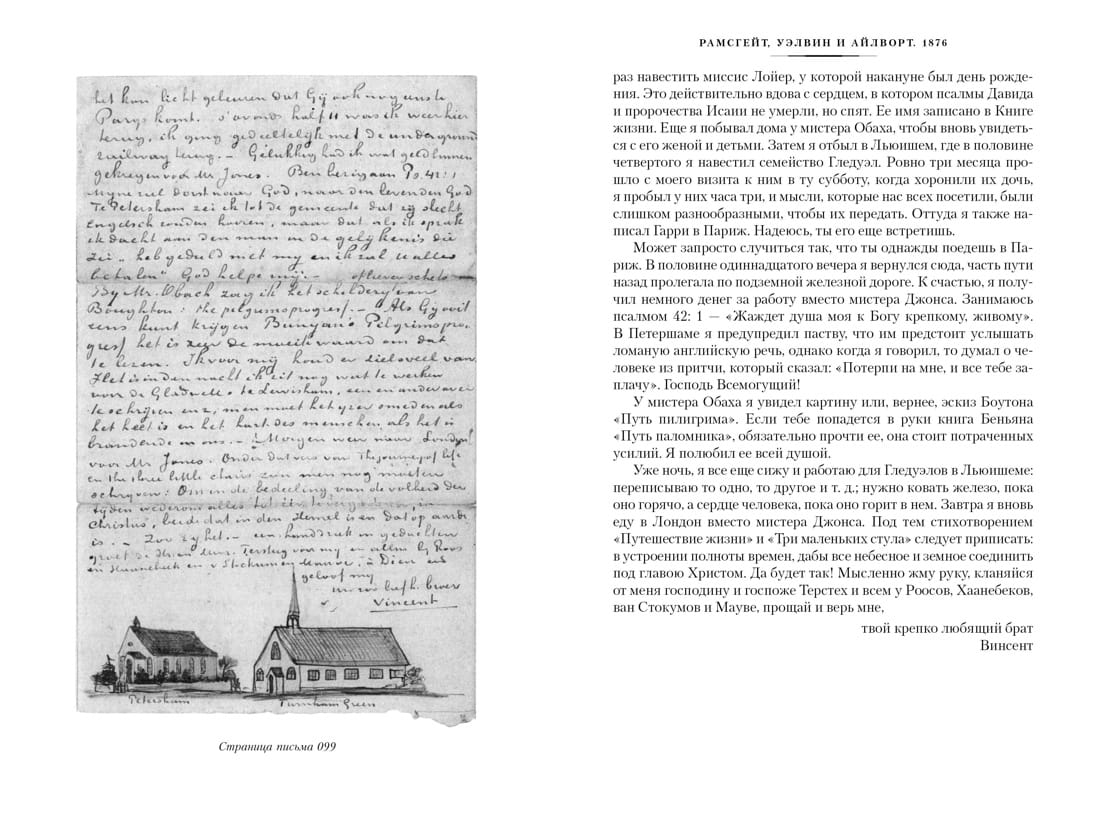 het kan licht gebeuren dat Gij ook nog eens
Parys komt. s'avonds half 11 was ik weer hier
terug, ik ging gedeeltelijk met de underground
railway terug. – Gelukkig had ik wat geld binnen
gekregen voor Mr Jones. Ben bezig aan Ps. 42:1
Myne ziel dorst naar God, naar den levenden God
Te Petersham zei ik tot de gemeente dat zy slecht
Engelsch zouden hooren, maar dat als ik sprak
ik dacht aan den man in de gelykenis die
zei „heb geduld met my en ik zal u alles
betalen" God helpe mij. –
By Mr. Obach zag ik het schildery van
Boughton: the pilgrimsprogress. – Als Gy ooit
eens kunt krijgen Bunyan's Pelgrimspro-
gress het is zeer de moeite waard om dat
te lezen. Ik voor mij houd er zielsveel van
Het is in den nacht ik zit nog wat te werken
voor de Gladwells te Lewisham, een en ander over
te schrijven enz, men moet het yzer smeden als
het heet is en het hart des menschen als het is
brandende in ons. – Morgen weer naar London
voor Mr Jones. Onder dat vers van The journey of life
en the three little chairs zou men nog moeten
schrijven: Om in de bedeeling van de volheid der
tijden wederom alles tot één te vergaderen, in
Christus, beide dat in den Hemel is en dat op aarde
is. – Zoo zij het. – een handdruk in gedachten
groet de Heer & Mevr. Tersteeg voor my en allen bij Roos
en Haanebeek en v Stockum en Mauve, à Dieu en
geloof my
uw zoo liefh. broer
Vincent
Petersham
Turnham Green
Страница письма 099
РАМСГЕЙТ, УЭЛВИН И АЙЛВОРТ. 1876
раз навестить миссис Лойер, у которой накануне был день рожде-
ния. Это действительно вдова с сердцем, в котором псалмы Давида
и пророчества Исаии не умерли, но спят. Ее имя записано в Книге
жизни. Еще я побывал дома у мистера Обаха, чтобы вновь увидеть-
ся с его женой и детьми. Затем я отбыл в Льюишем, где в половине
четвертого я навестил семейство Гледуэл. Ровно три месяца про-
шло с моего визита к ним в ту субботу, когда хоронили их дочь,
я пробыл у них часа три, и мысли, которые нас всех посетили, были
слишком разнообразными, чтобы их передать. Оттуда я также на-
писал Гарри в Париж. Надеюсь, ты его еще встретишь.
Может запросто случиться так, что ты однажды поедешь в Па-
риж. В половине одиннадцатого вечера я вернулся сюда, часть пути
назад пролегала по подземной железной дороге. К счастью, я полу-
чил немного денег за работу вместо мистера Джонса. Занимаюсь
псалмом 42: 1 — «Жаждет душа моя к Богу крепкому, живому».
В Петершаме я предупредил паству, что им предстоит услышать
ломаную английскую речь, однако когда я говорил, то думал о че-
ловеке из притчи, который сказал: «Потерпи на мне, и все тебе за-
плачу». Господь Всемогущий!
У мистера Обаха я увидел картину или, вернее, эскиз Боутона
«Путь пилигрима». Если тебе попадется в руки книга Беньяна
«Путь паломника», обязательно прочти ее, она стоит потраченных
усилий. Я полюбил ее всей душой.
Уже ночь, я все еще сижу и работаю для Гледуэлов в Льюишеме:
переписываю то одно, то другое и т. д.; нужно ковать железо, пока
оно горячо, а сердце человека, пока оно горит в нем. Завтра я вновь
еду в Лондон вместо мистера Джонса. Под тем стихотворением
«Путешествие жизни» и «Три маленьких стула» следует приписать:
в устроении полноты времен, дабы все небесное и земное соединить
под главою Христом. Да будет так! Мысленно жму руку, кланяйся
от меня господину и госпоже Терстех и всем у Роосов, Хаанебеков,
ван Стокумов и Мауве, прощай и верь мне,
твой крепко любящий брат
Винсент